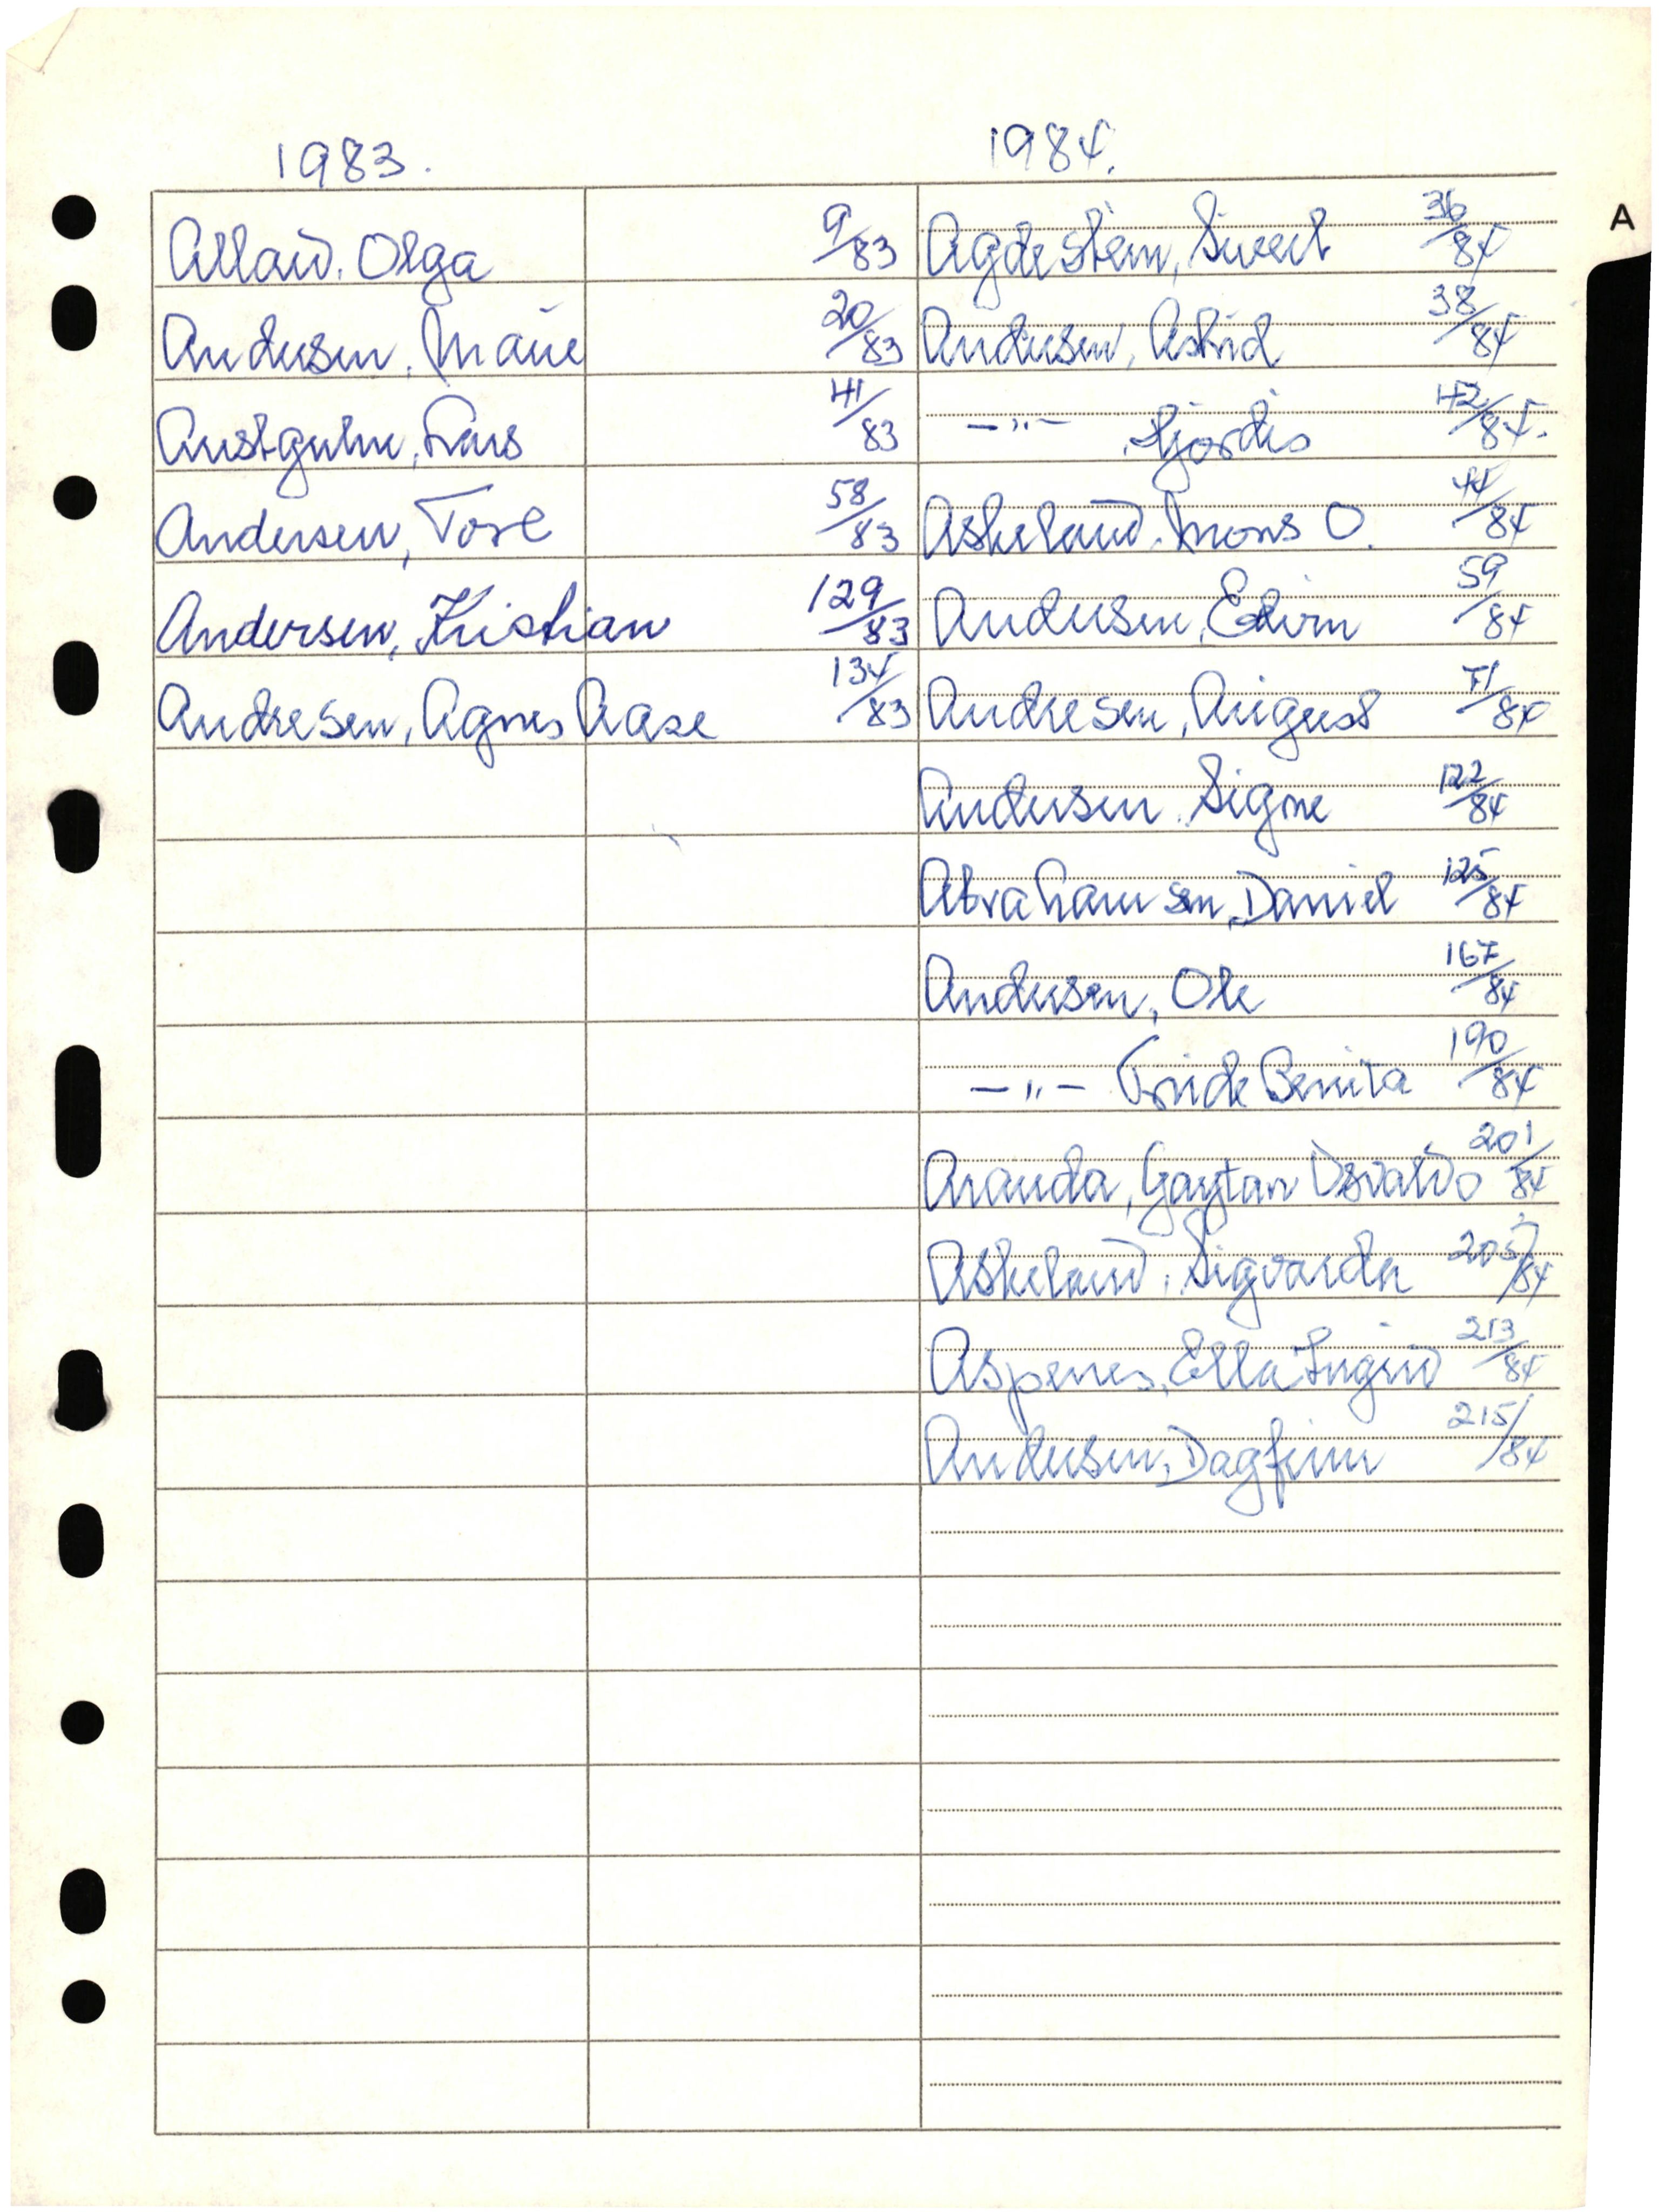 1983.
Alland, Olga 9/83
Andersen, Marie 20/83
Austgulen, Lars 41/83
Andersen, Tore 58/83
Andersen, Kristian 129/83
Andresen, Agnes Aase 134/83
1984.
A
Agdestein, Sivert 36/84
Andersen, Astrid 38/84
—"— , Hjørdis 42/84.
Askeland, Mons O. 44/84
Andersen, Edvin 59/84
Andresen, August 71/84
Andersen, Signe 122/84
Abrahamsen, Daniel 125/84
Andersen, Ole 167/84
—"— Benita 190/84
Aranda, Gaytan Osvaldo 201/84
Askeland, Sigvarda 205/84
Aspenes, Ella Ingrid 213/84
Andersen, Dagfinn 215/84